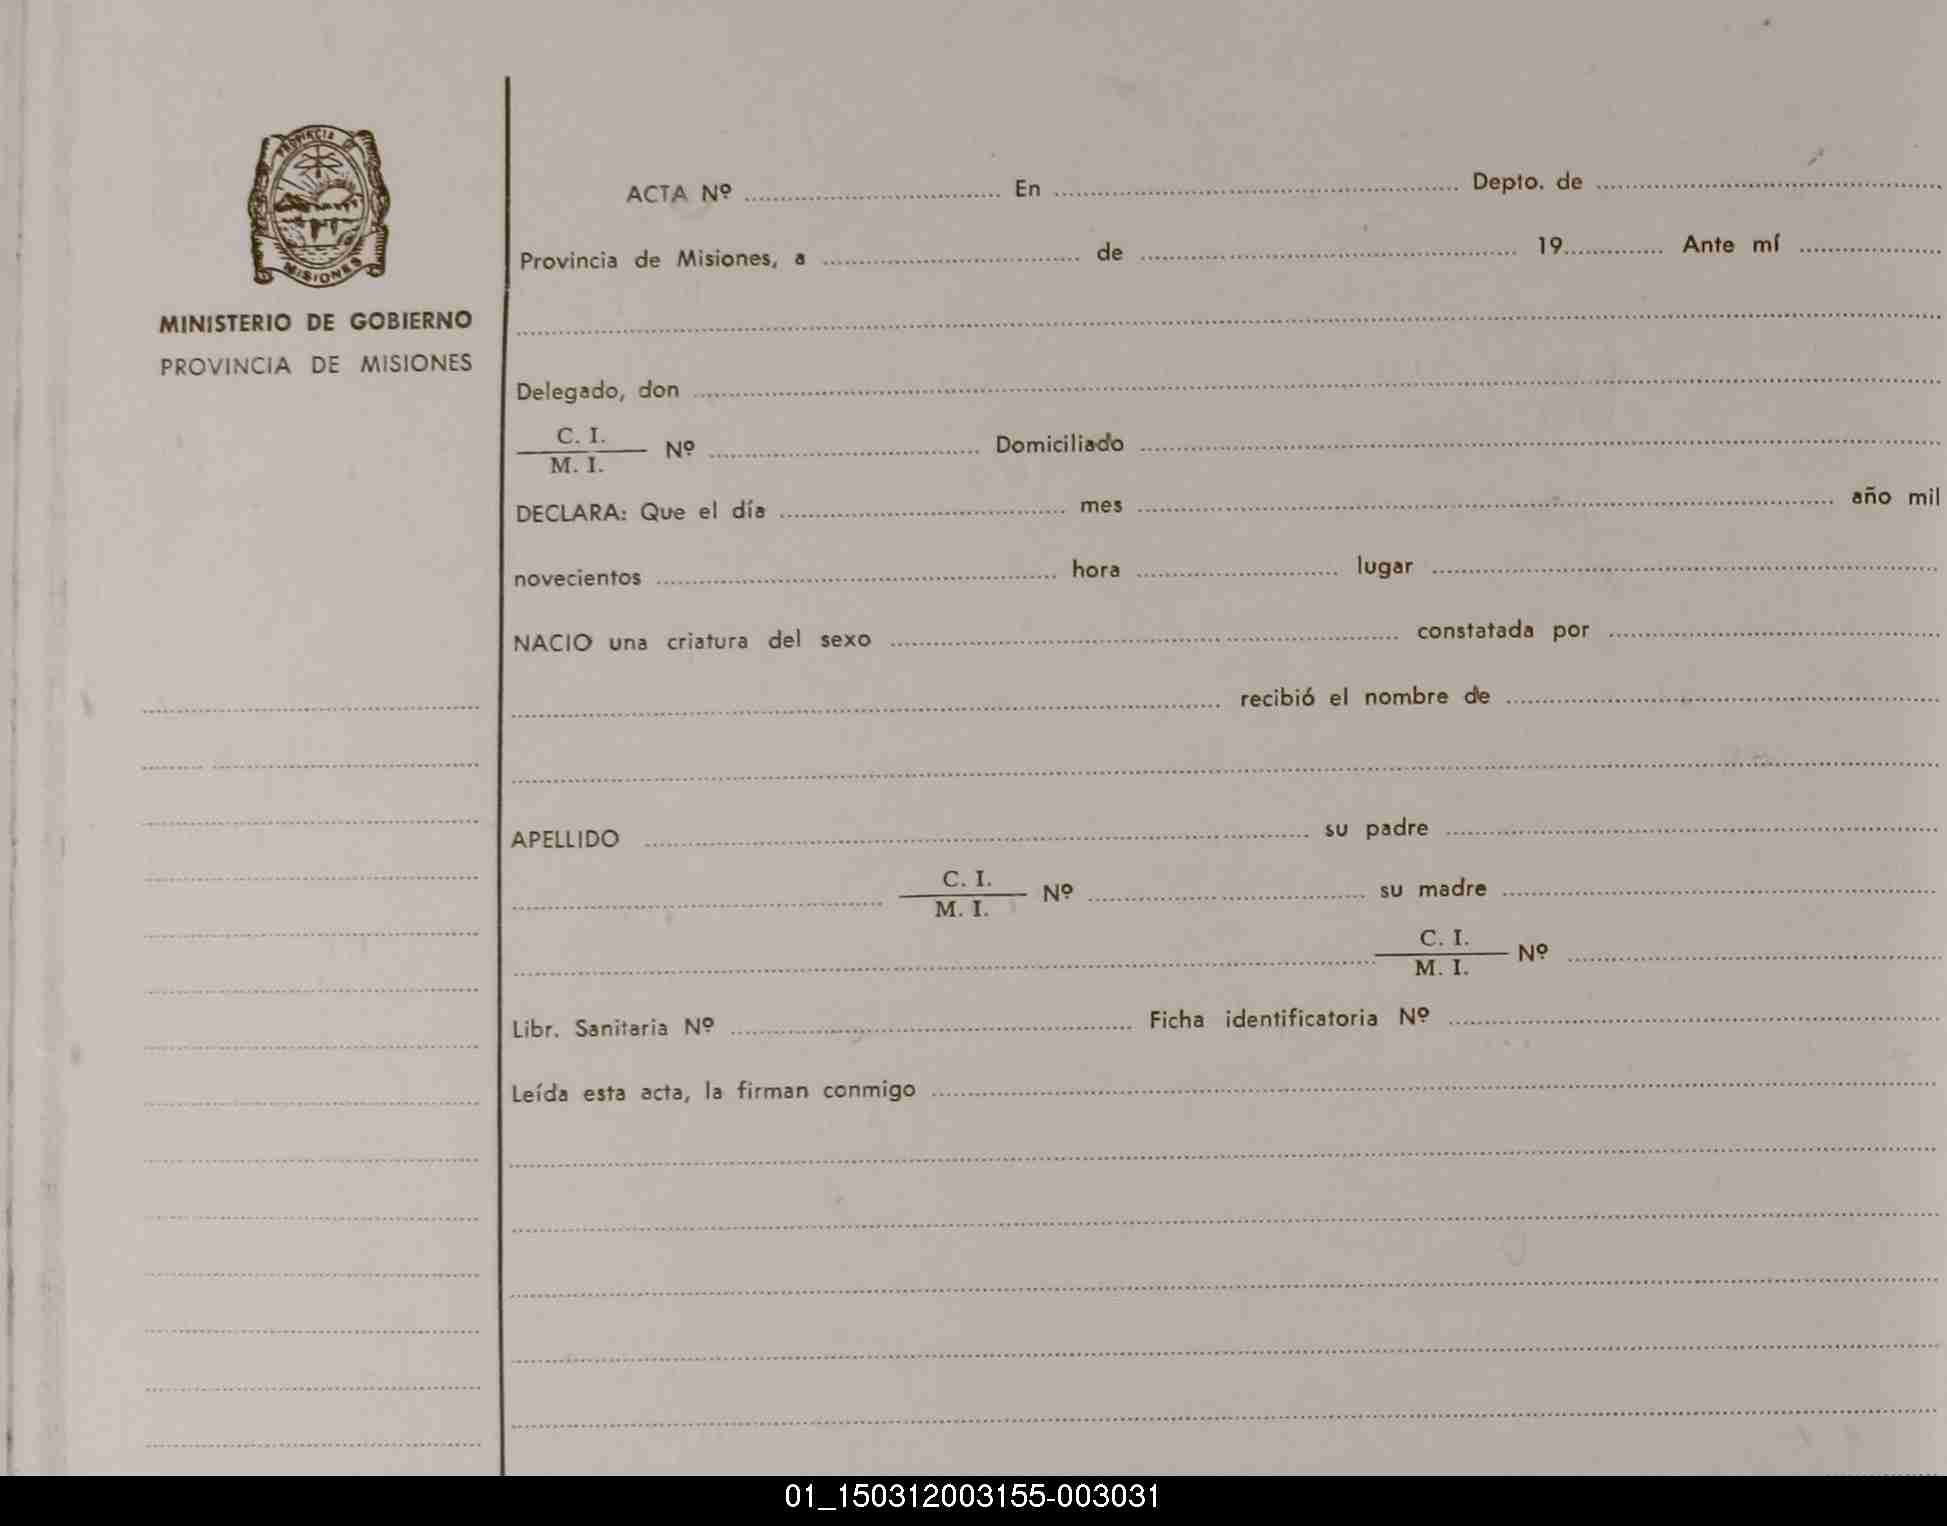 PROVINCIA DE
MISIONES
MINISTERIO DE GOBIERNO
PROVINCIA DE MISIONES
ACTA Nº ........ En ........ Depto. de ........
Provincia de Misiones, a ........ de ........ 19........ Ante mí ........
Delegado, don ........
C. I.
M. I. Nº ........ Domiciliado ........
DECLARA: Que el día ........ mes ........ año mil
novecientos ........ hora ........ lugar ........
NACIO una criatura del sexo ........ constatada por ........
........ recibió el nombre de ........
APELLIDO ........ su padre ........
C. I.
M. I. Nº ........ su madre ........
C. I.
M. I. Nº ........
Libr. Sanitaria Nº ........ Ficha identificatoria Nº ........
Leída esta acta, la firman conmigo ........
01_150312003155-003031